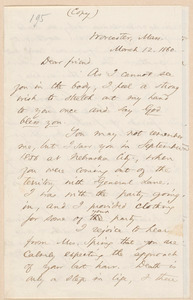 195
(Copy)
Worcester, Mass.
March 12. 1860.
Dear friend
As I cannot see
you in the body, I feel a strong
wish to stretch out my hand
to you once and say God
bless you
You may not remember
me, but I saw you in September
1856 at Nebraska City, when
you were coming out of the
territory with General Lane.
I was with the party going
in, and I provided clothing
for some of your party
I rejoice to hear
from Mrs. Spring that you are
calmly expecting the approach
of your last hour. Death is
only a step in life, & there